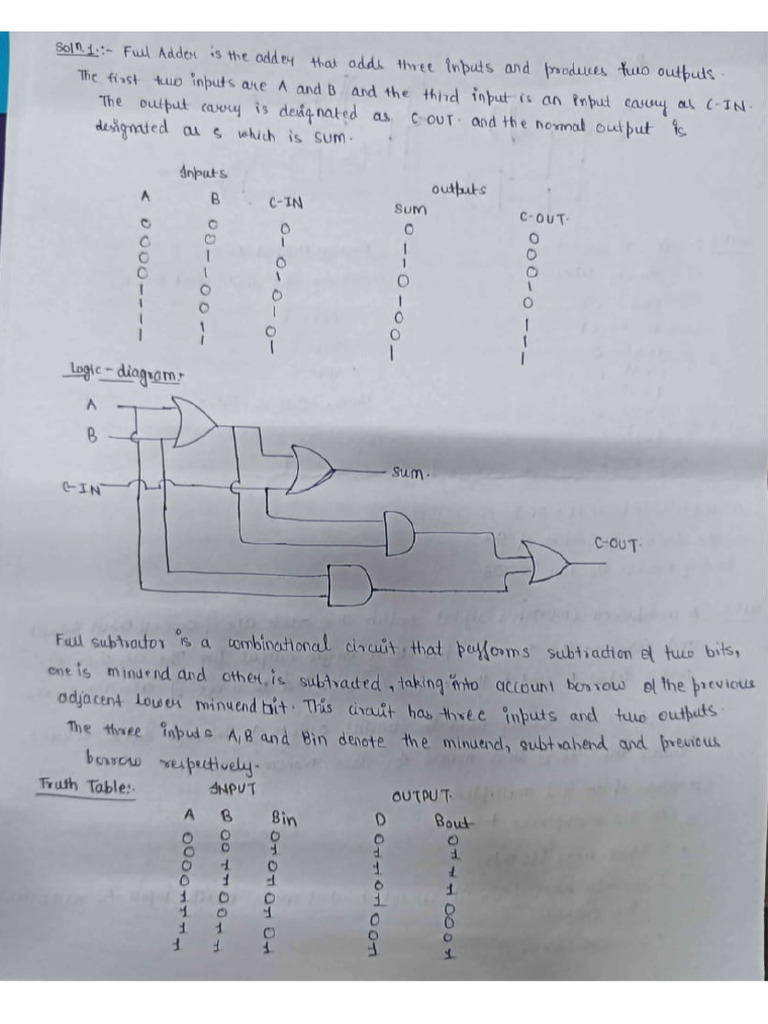 Soln 1:- Full Adder is the adder that adds three inputs and produces two outputs.
The first two inputs are A and B and the third input is an input carry as C-IN.
The output carry is designated as C-OUT. and the normal output is
designated as S which is SUM.
Inputs outputs
A B C-IN SUM C-OUT.
0 0 0 0 0
0 0 1 1 0
0 1 0 1 0
0 1 1 0 1
1 0 0 1 0
1 0 1 0 1
1 1 0 0 1
1 1 1 1 1
Logic-diagram:
A
B
C-IN
Sum.
C-OUT.
Full subtractor is a combinational circuit that performs subtraction of two bits,
one is minuend and other is subtracted, taking into account borrow of the previous
adjacent lower minuend bit. This circuit has three inputs and two outputs.
The three inputs A, B and Bin denote the minuend, subtrahend and previous
borrow respectively.
Truth Table:- INPUT OUTPUT.
A B Bin D Bout
0 0 0 0 0
0 0 1 1 1
0 1 0 1 1
0 1 1 0 1
1 0 0 1 0
1 0 1 0 0
1 1 0 0 0
1 1 1 1 1